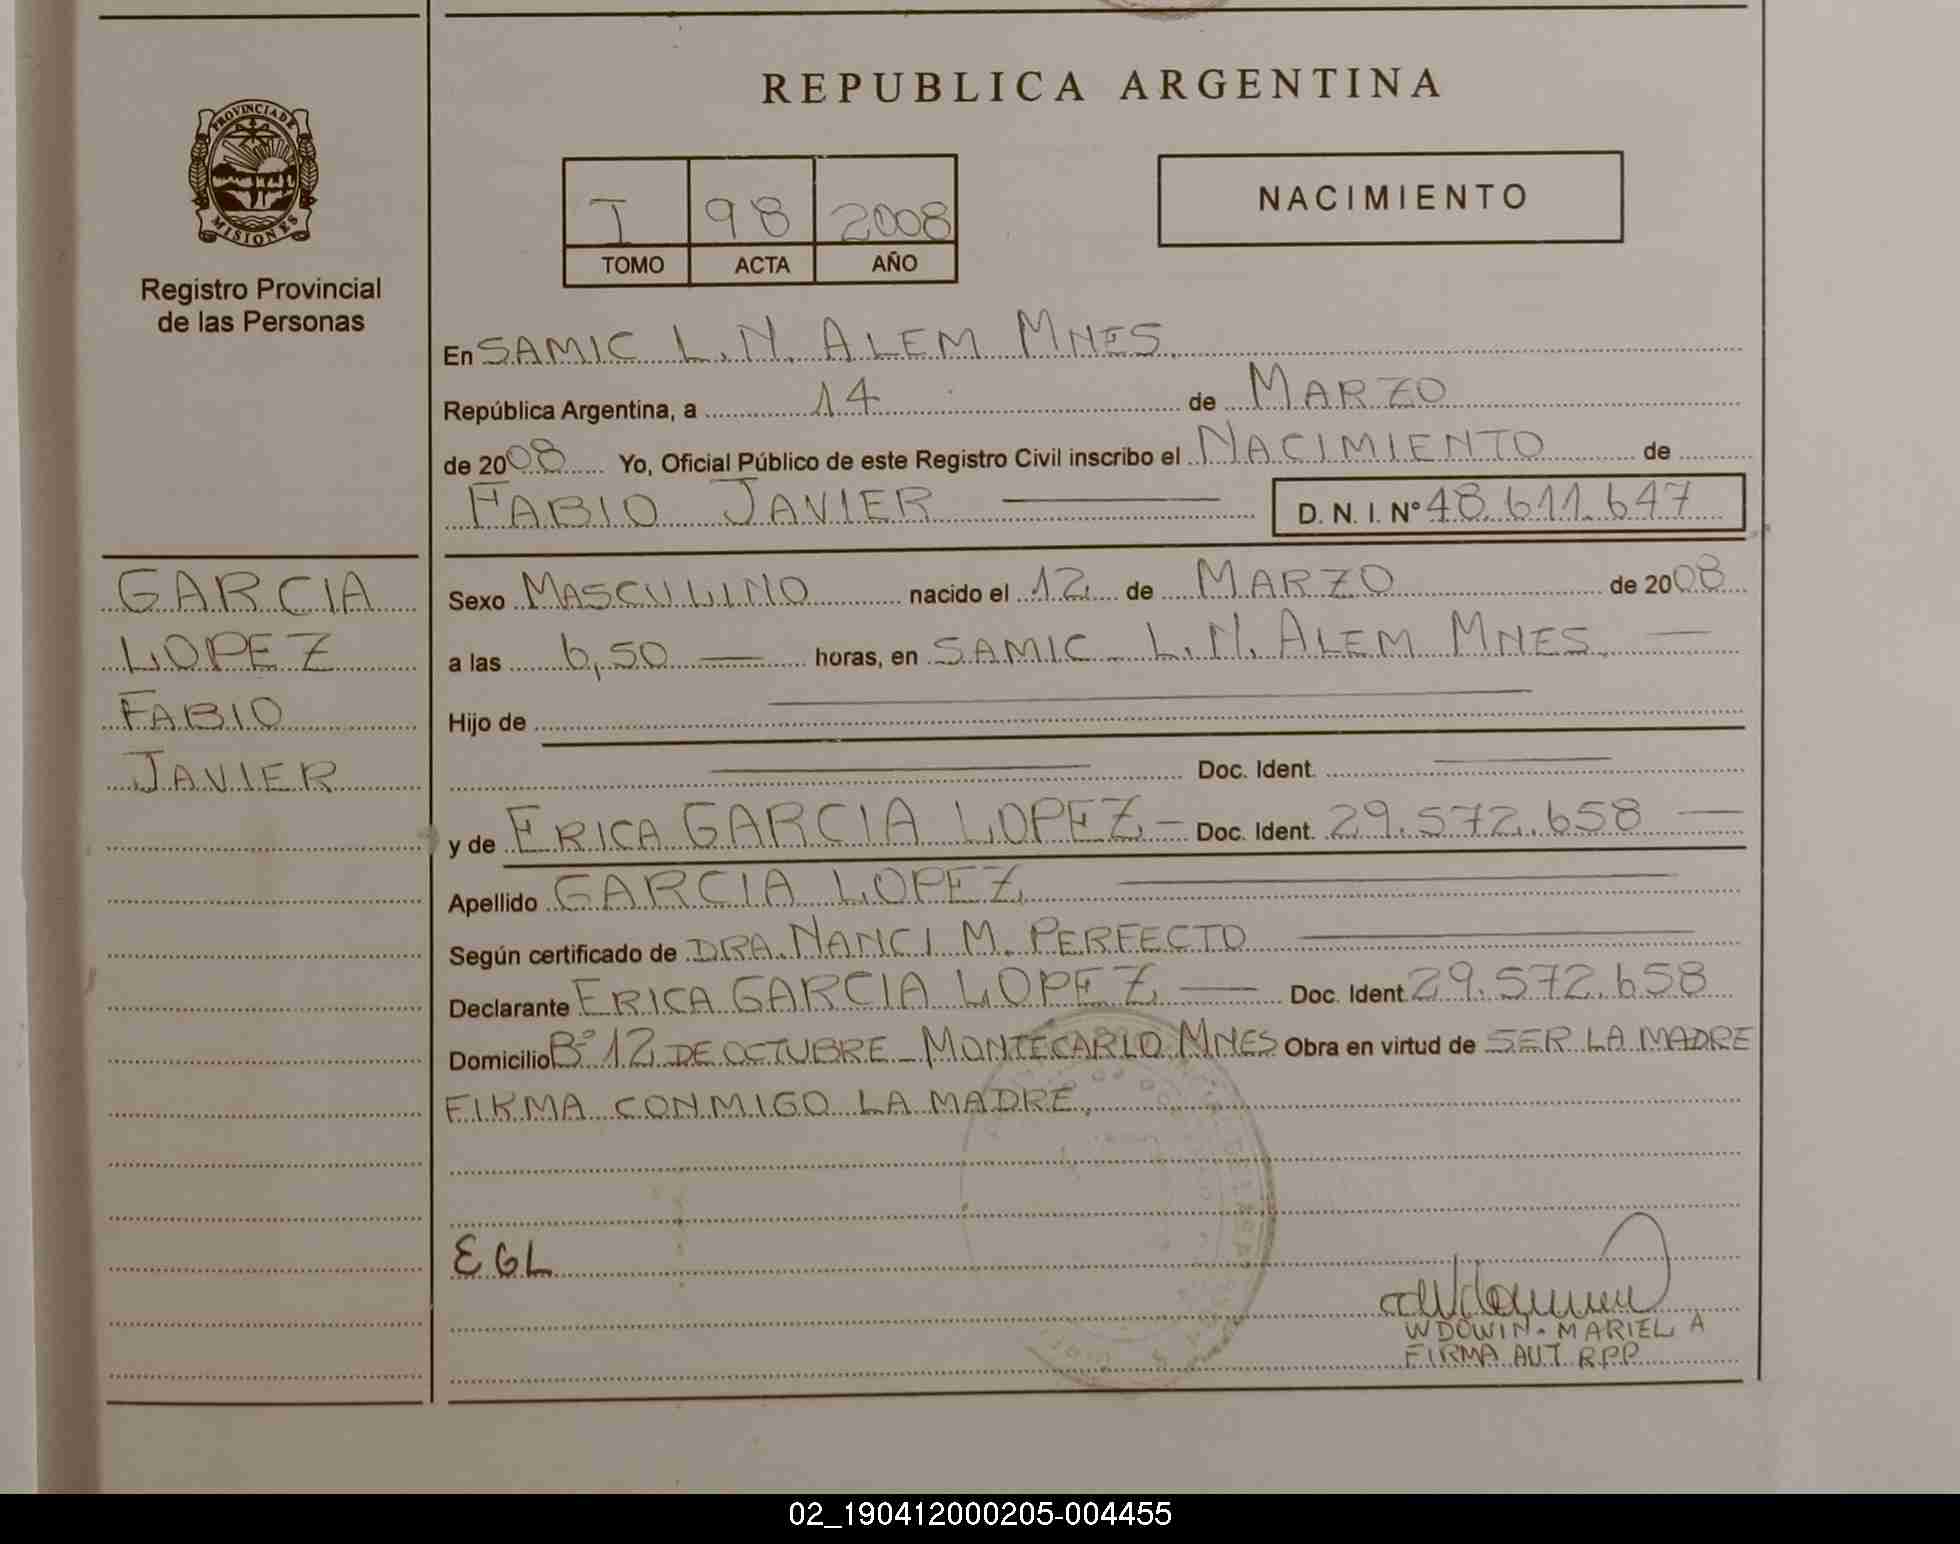 REPUBLICA ARGENTINA
PROVINCIA DE
MISIONES
Registro Provincial
de las Personas
I 98 2008
TOMO ACTA AÑO
NACIMIENTO
En SAMIC L.N. ALEM MNES.
República Argentina, a 14 de MARZO
de 2008 Yo, Oficial Público de este Registro Civil inscribo el NACIMIENTO de
FABIO JAVIER D. N. I. Nº 48.611.647
GARCIA
LOPEZ
FABIO
JAVIER
Sexo MASCULINO nacido el 12 de MARZO de 2008
a las 6,50 horas, en SAMIC L.N. ALEM MNES.
Hijo de
Doc. Ident.
y de ERICA GARCIA LOPEZ - Doc. Ident. 29.572.658
Apellido GARCIA LOPEZ
Según certificado de DRA. NANCI M. PERFECTO
Declarante ERICA GARCIA LOPEZ Doc. Ident. 29.572.658
Domicilio Bº 12 DE OCTUBRE - MONTECARLO MNES Obra en virtud de SER LA MADRE
FIRMA CONMIGO LA MADRE.
EGL
WDOWIN. MARIEL A
FIRMA AUT RPP
02_190412000205-004455